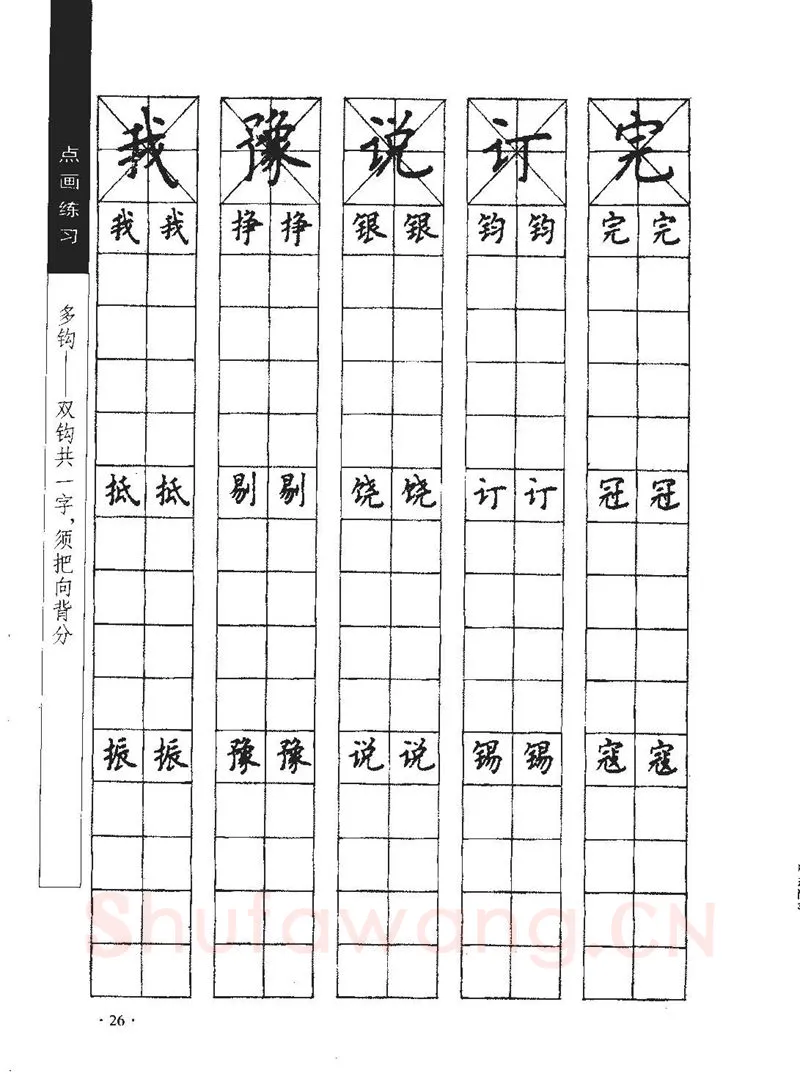 点画练习
多钩——双钩共一字，须把向背分
我 豫 说 订 完
我 我 挣 挣 银 银 钧 钧 完 完
抵 抵 剔 剔 饶 饶 订 订 冠 冠
振 振 豫 豫 说 说 锡 锡 寇 寇
Shufawang.CN
·26·